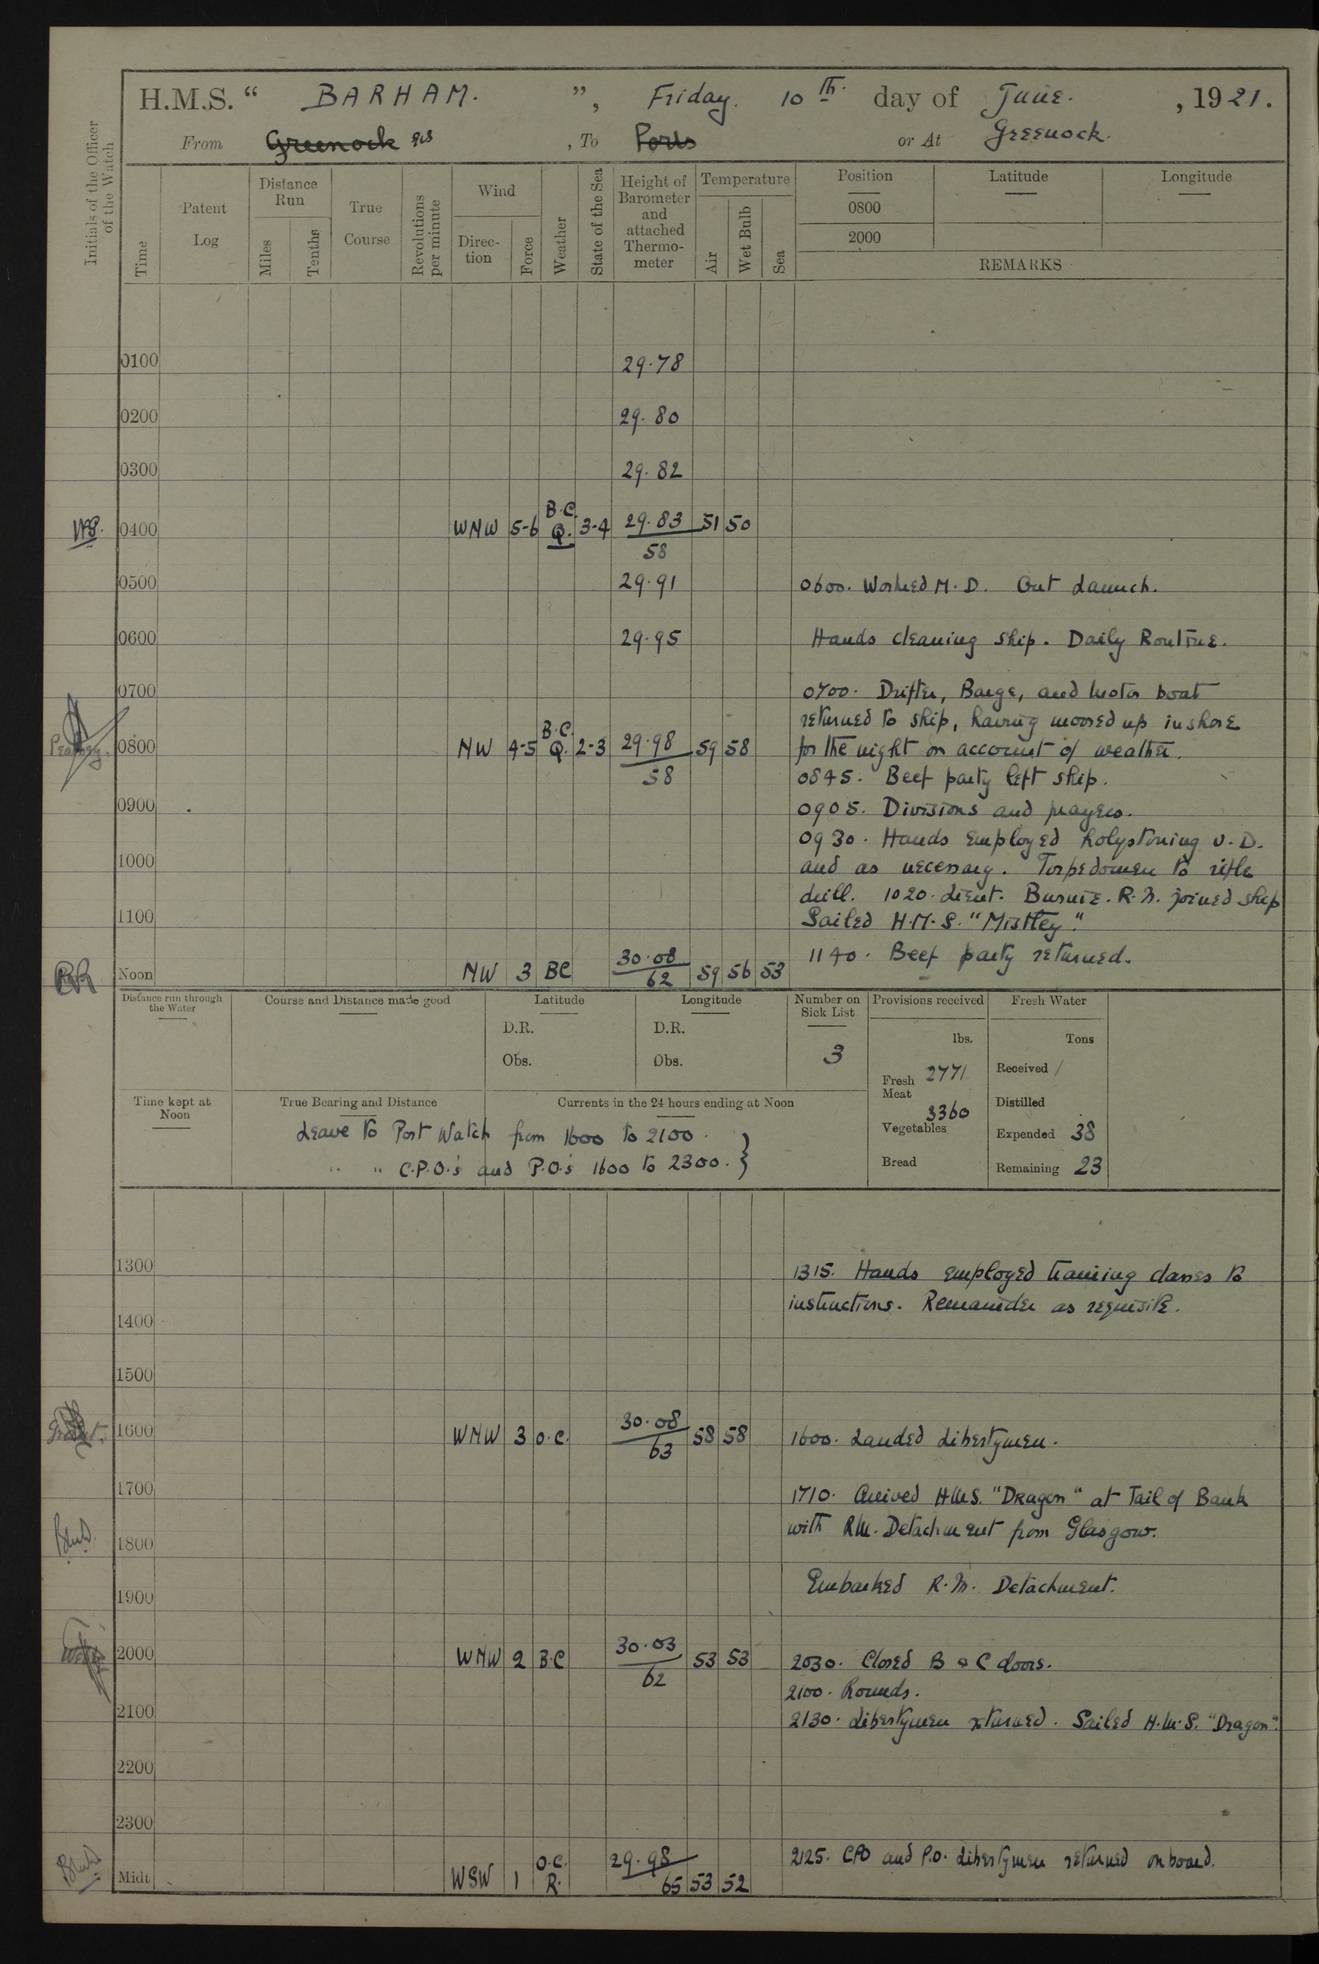 H.M.S. “ BARHAM. ”, Friday. 10th. day of June. , 1921.
From Greenock , To Ports or At Greenock.
Initials of the Officer of the Watch
Time
Patent Log
Distance Run
Miles
Tenths
True Course
Revolutions per minute
Wind
Direction
Force
Weather
State of the Sea
Height of Barometer and attached Thermometer
Temperature
Air
Wet Bulb
Sea
Position Latitude Longitude
0800
2000
REMARKS
0100 29.78
0200 29.80
0300 29.82
0400 WNW 5-6 B.C. Q. 3-4 29.83 58 51 50
0500 29.91 0600. Worked M.D. Out Launch.
0600 29.95 Hands cleaning ship. Daily Routine.
0700 0700. Drifter, Barge, and motor boat
returned to ship, having moored up inshore
0800 NW 4-5 B.C. Q. 2-3 29.98 58 59 58 for the night on account of weather.
0845. Beef party left ship.
0900 0905. Divisions and prayers.
0930. Hands employed holystoning U.D.
1000 and as necessary. Torpedomen to rifle
drill. 1020. Lieut. Burnie. R.N. joined ship
1100 Sailed H.M.S. "Mistley."
1140. Beef party returned.
Noon NW 3 BC 30.08 62 59 56 53
Distance run through the Water
Course and Distance made good
Latitude
D.R.
Obs.
Longitude
D.R.
Obs.
Number on Sick List
3
Provisions received
lbs.
Fresh Meat 2771
Vegetables 3360
Bread
Fresh Water
Tons
Received /
Distilled
Expended 38
Remaining 23
Time kept at Noon
True Bearing and Distance
Currents in the 24 hours ending at Noon
Leave to Port Watch from 1600 to 2100.
" " C.P.O.'s and P.O.'s 1600 to 2300. }
1300 1315. Hands employed training classes to
instructions. Remainder as requisite.
1400
1500
1600 WNW 3 O.C. 30.08 63 58 58 1600. Landed Libertymen.
1700 1710. Arrived H.M.S. "Dragon" at Tail of Bank
with R.M. Detachment from Glasgow.
1800
Embarked R.M. Detachment.
1900
2000 WNW 2 B.C 30.03 62 53 53 2030. Closed B & C doors.
2100. Rounds.
2100 2130. Libertymen returned. Sailed H.M.S. "Dragon".
2200
2300
2125. CPO and P.O. Libertymen returned on board.
Midt WSW 1 O.C. R. 29.98 65 53 52